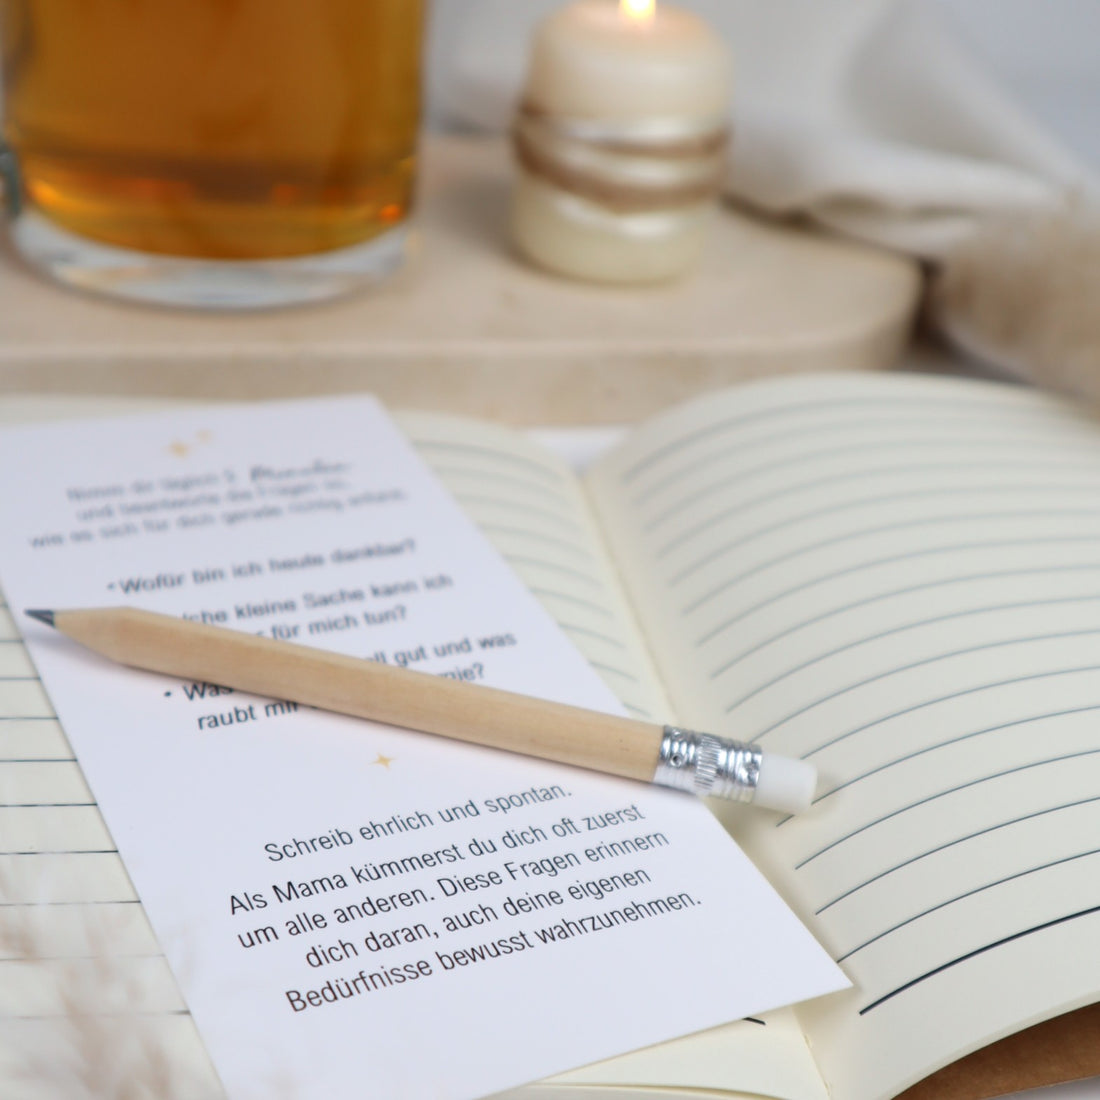 Nimm dir täglich 5 Minuten
und beantworte die Fragen so,
wie es sich für dich gerade richtig anfühlt.
• Wofür bin ich heute dankbar?
kleine Sache kann ich
für mich tun?
gut und was
• Was
raubt mir
Schreib ehrlich und spontan.
Als Mama kümmerst du dich oft zuerst
um alle anderen. Diese Fragen erinnern
dich daran, auch deine eigenen
Bedürfnisse bewusst wahrzunehmen.